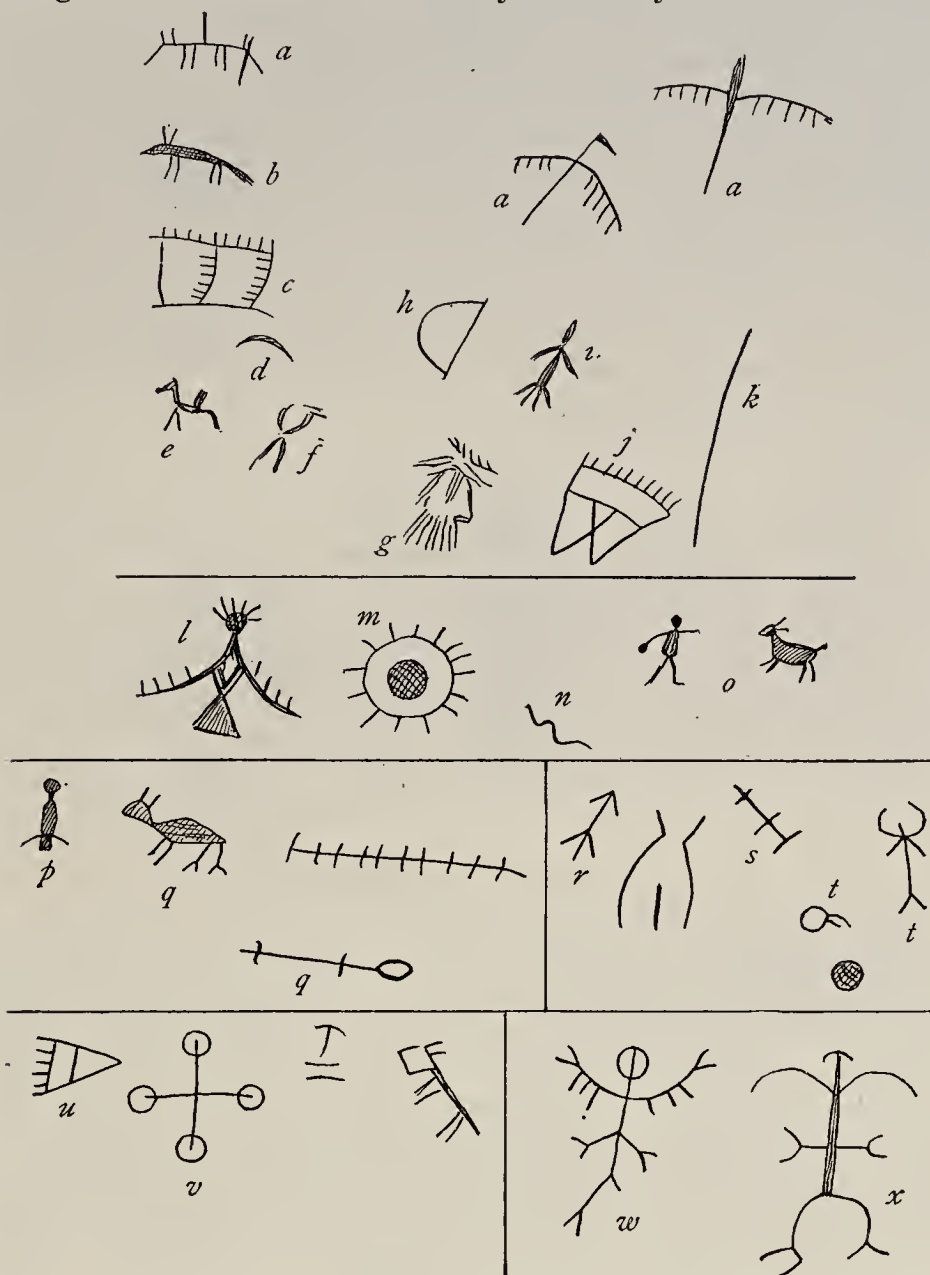 a
b
a
a
c
h
d
i.
k
e
f
j
g
l
m
n
o
p
q
q
r
s
t
t
u
v
w
x